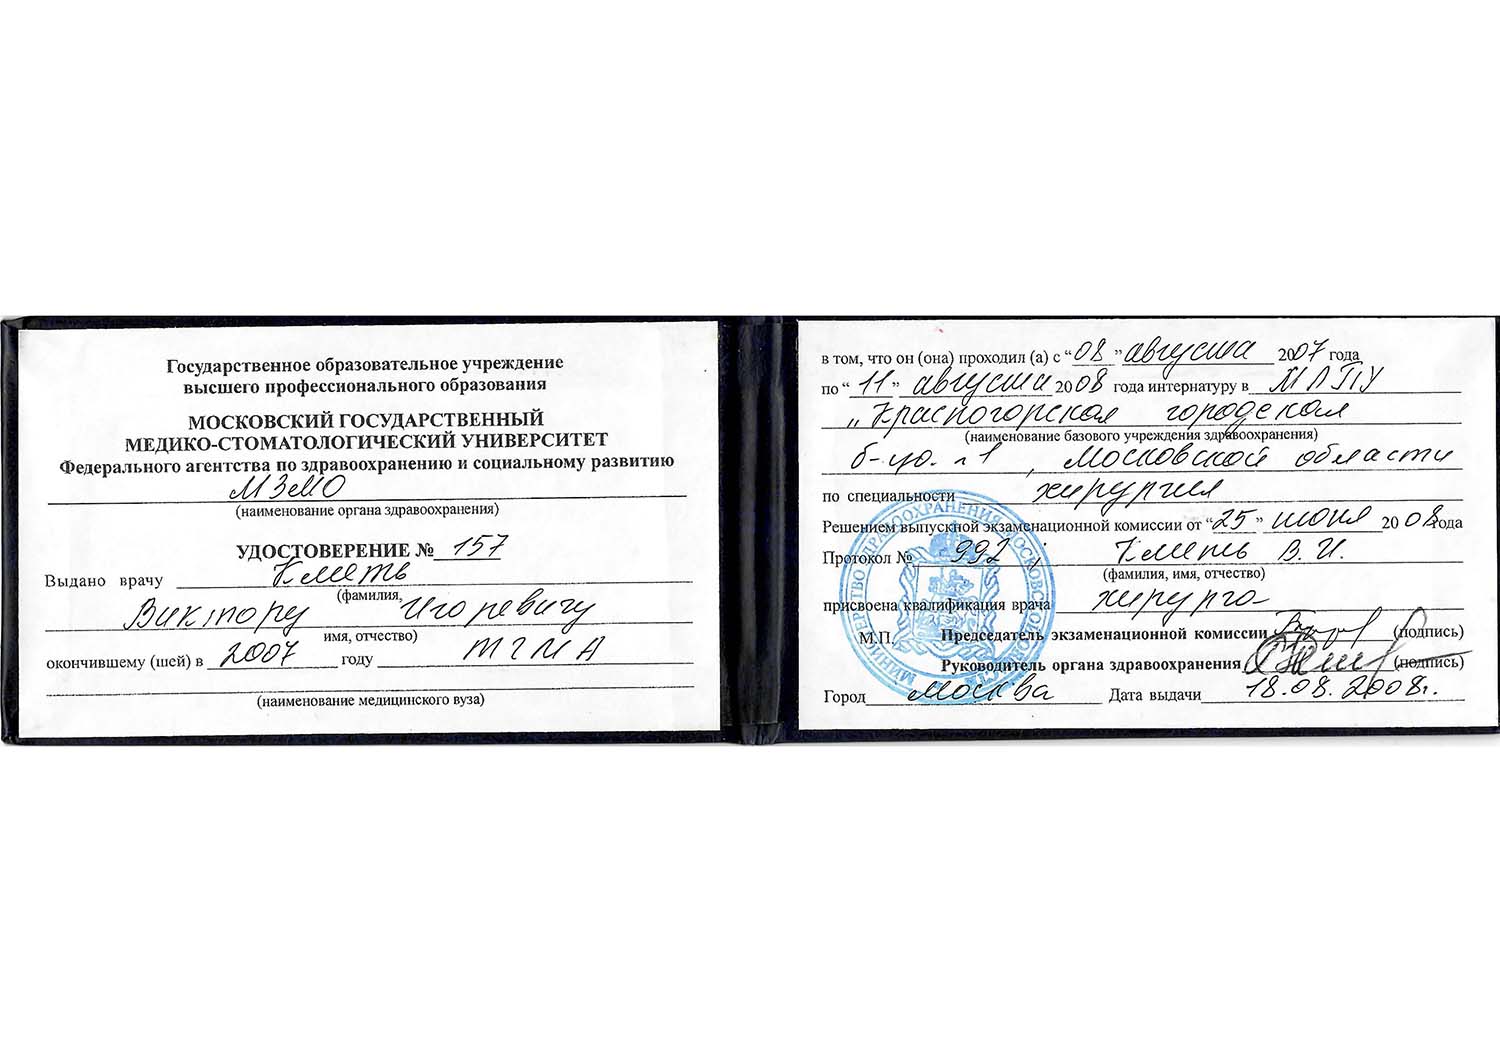 Государственное образовательное учреждение
высшего профессионального образования
МОСКОВСКИЙ ГОСУДАРСТВЕННЫЙ
МЕДИКО-СТОМАТОЛОГИЧЕСКИЙ УНИВЕРСИТЕТ
Федерального агентства по здравоохранению и социальному развитию
МЗМО
(наименование органа здравоохранения)
УДОСТОВЕРЕНИЕ № 157
Выдано врачу Кметь
(фамилия,
Виктору Игоревичу
имя, отчество)
окончившему (шей) в 2007 году ТГМА
(наименование медицинского вуза)
в том, что он (она) проходил (а) с “08” августа 2007 года
по “11” августа 2008 года интернатуру в МЛПУ
„Красногорская городская
(наименование базового учреждения здравоохранения)
б-ца. №1, Московской области
по специальности хирургия
Решением выпускной экзаменационной комиссии от “25” июня 2008 года
Протокол № 992, Кметь В. И.
(фамилия, имя, отчество)
присвоена квалификация врача хирурга
М.П. Председатель экзаменационной комиссии (подпись)
Руководитель органа здравоохранения (подпись)
Город Москва Дата выдачи 18.08.2008г.
МИНИСТЕРСТВО ЗДРАВООХРАНЕНИЯ МОСКОВСКОЙ ОБЛАСТИ